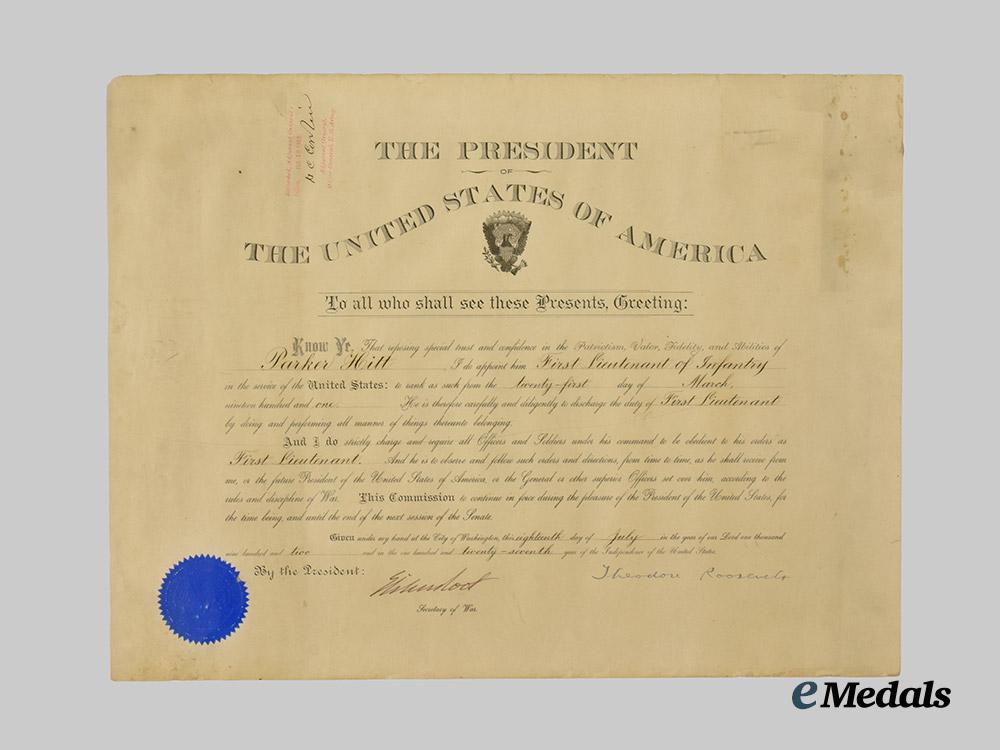 THE PRESIDENT
OF
THE UNITED STATES OF AMERICA
To all who shall see these Presents, Greeting:
Know Ye, That reposing special trust and confidence in the Patriotism, Valor, Fidelity, and Abilities of
Parker Hitt, I do appoint him First Lieutenant of Infantry
in the service of the United States: to rank as such from the twenty-first day of March,
nineteen hundred and one. He is therefore carefully and diligently to discharge the duty of First Lieutenant
by doing and performing all manner of things thereunto belonging.
And I do strictly charge and require all Officers and Soldiers under his command to be obedient to his orders as
First Lieutenant. And he is to observe and follow such orders and directions, from time to time, as he shall receive from
me, or the future President of the United States of America, or the General or other superior Officers set over him, according to the
rules and discipline of War. This Commission to continue in force during the pleasure of the President of the United States, for
the time being, and until the end of the next session of the Senate.
Given under my hand at the City of Washington, this eighteenth day of July in the year of our Lord one thousand
nine hundred and two and in the one hundred and twenty-seventh year of the Independence of the United States.
By the President:
Theodore Roosevelt
Elihu Root
Secretary of War.
eMedals